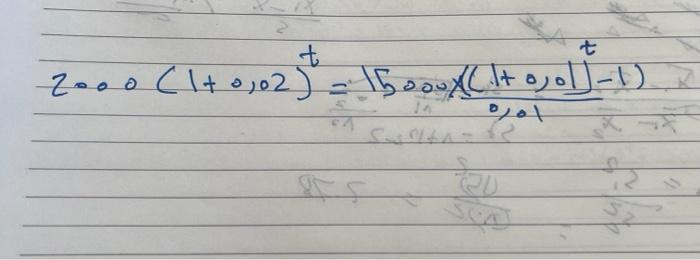 2000 (1+0,02)^t = 15000×((1+0,01)^t-1)/0,01